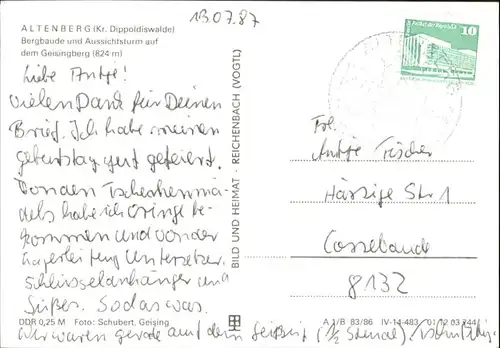 13.07.87
ALTENBERG (Kr. Dippoldiswalde)
Bergbaude und Aussichtsturm auf
dem Geisingberg (824 m)
Liebe Antje!
Vielen Dank für Deinen
Brief. Ich habe meinen
Geburtstag gut gefeiert.
Von den Tschechenmä-
dels habe ich Oringe be-
kommen und von der
Lagerleitung Untersetzer,
Schlüsselanhänger und
Süßes. So das was.
Wir waren gerade auf dem (1/2 Stunde)
DDR 0,25 M Foto: Schubert, Geising
BILD UND HEIMAT · REICHENBACH (VOGTL)
10
Frl.
Antje Fischer
Str 1
Cossebaude
8132
A 1/B 83/86 IV-14-483 01 12 03 244